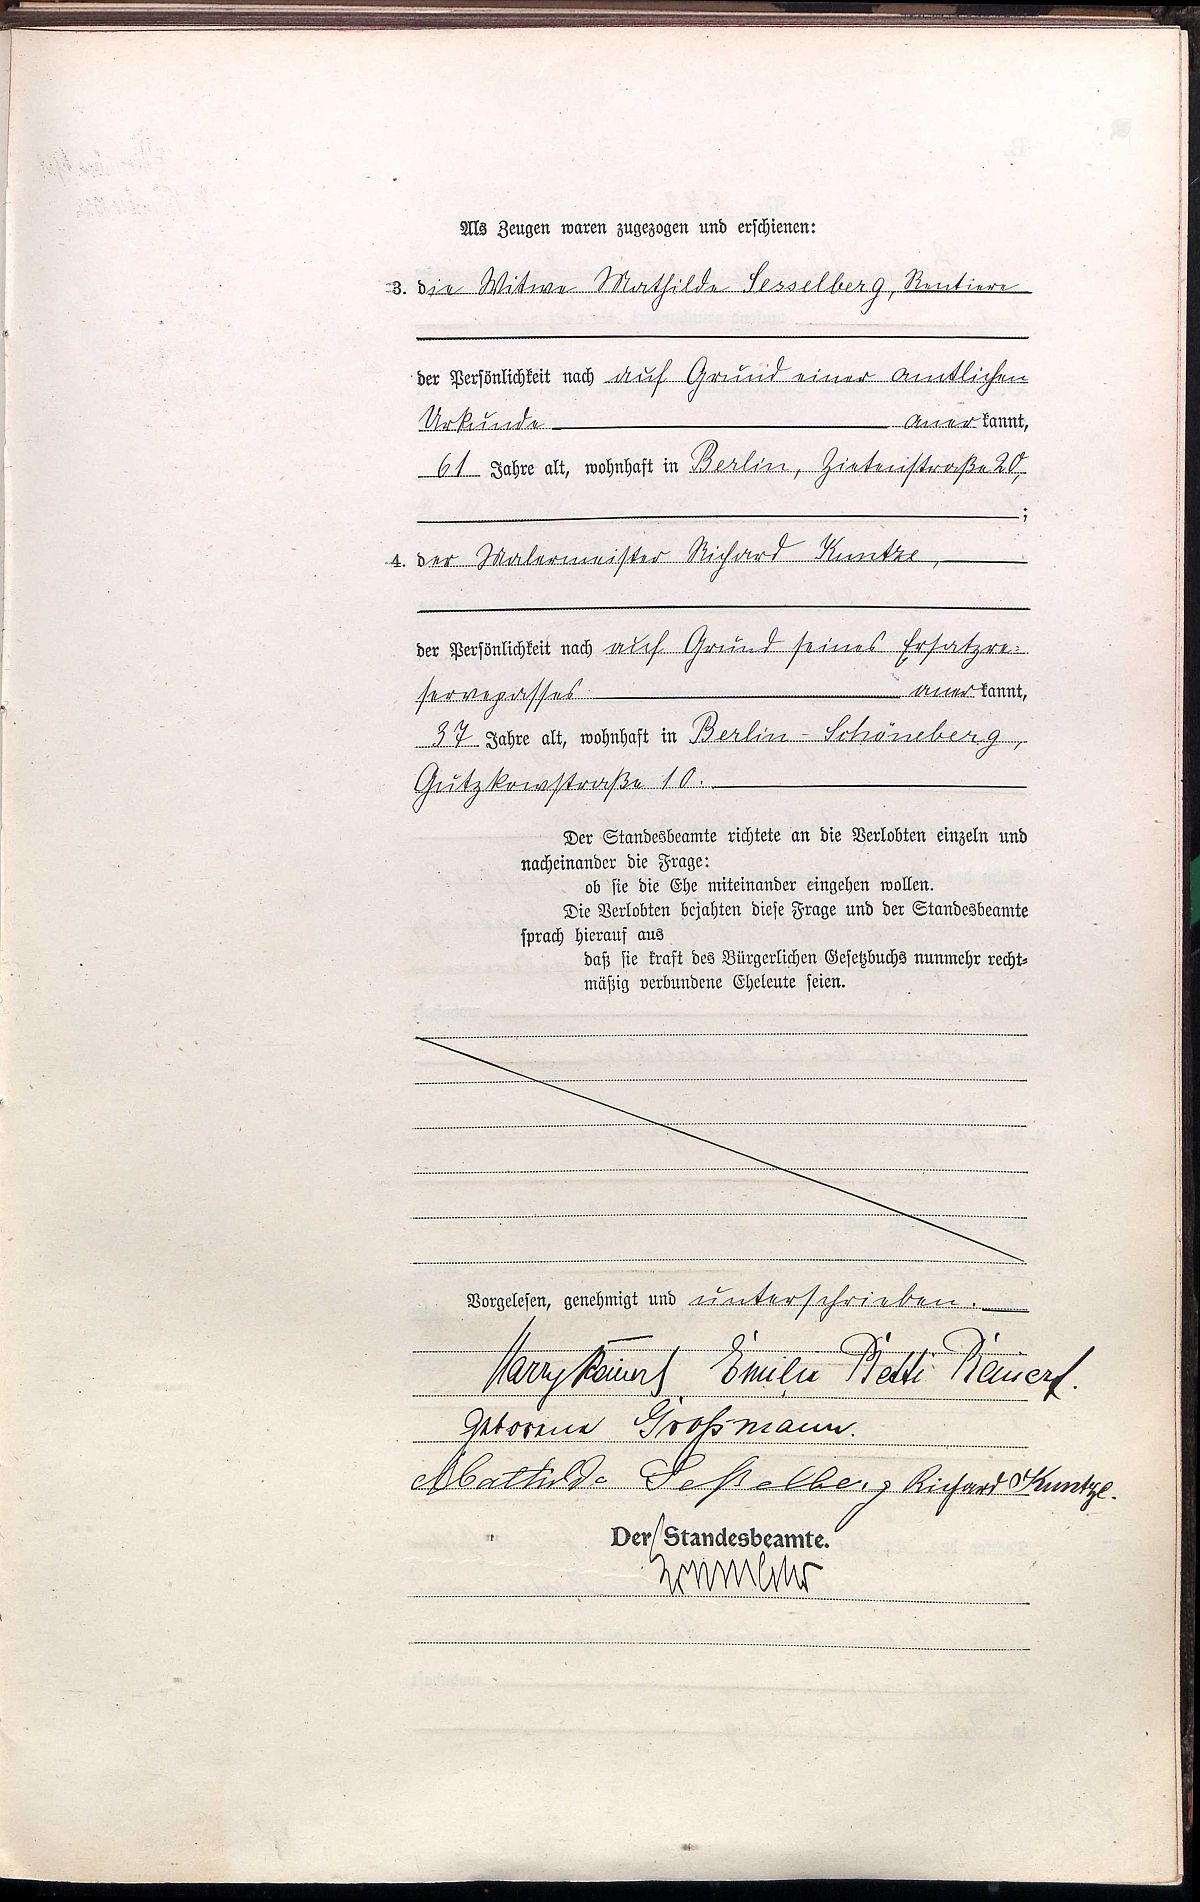 Als Zeugen waren zugezogen und erschienen:
3. die Witwe Mathilde Sesselberg, Rentiere
der Persönlichkeit nach auf Grund einer amtlichen
Urkunde anerkannt,
61 Jahre alt, wohnhaft in Berlin, Zietenstraße 20,
;
4. der Malermeister Richard Kuntze,
der Persönlichkeit nach auf Grund seines Ersatzre-
servepasses anerkannt,
37 Jahre alt, wohnhaft in Berlin-Schöneberg,
Gutzkowstraße 10.
Der Standesbeamte richtete an die Verlobten einzeln und
nacheinander die Frage:
ob sie die Ehe miteinander eingehen wollen.
Die Verlobten bejahten diese Frage und der Standesbeamte
sprach hierauf aus
daß sie kraft des Bürgerlichen Gesetzbuchs nunmehr recht-
mäßig verbundene Eheleute seien.
Vorgelesen, genehmigt und unterschrieben.
Harry Emilie Betti
geborene Großmann.
Mathilde Seßelberg Richard Kuntze.
Der Standesbeamte.